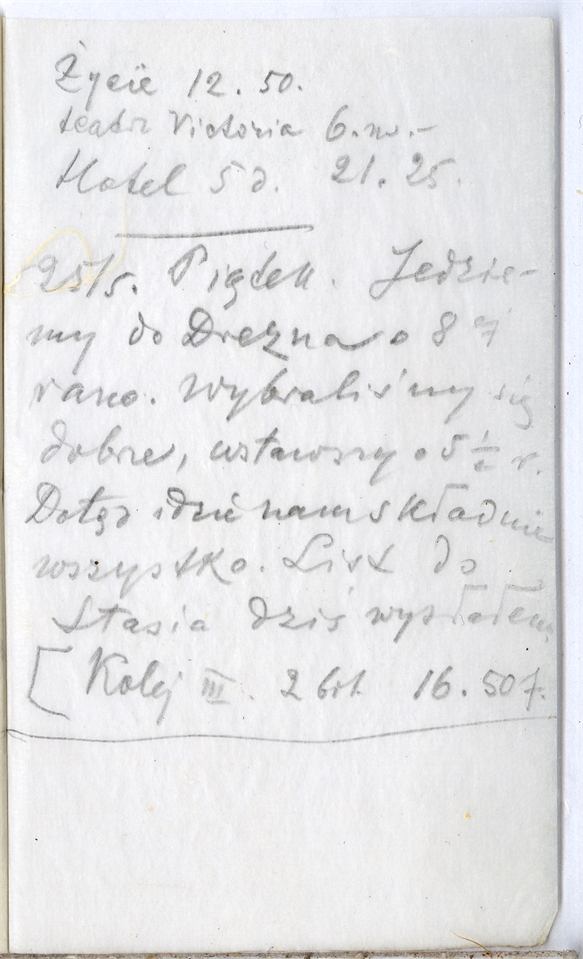 Życie 12.50.
teatr Victoria 6.m.–
Hotel 5 d. 21.25.
25/5. Piątek. Jedzie-
my do Drezna o 8
rano. Wybraliśmy się
dobrze, wstawszy o 5 ½ r.
Dotąd idzie nam składnie
wszystko. List do
Stasia dziś wysłałem
[Kolej III. 2 bil. 16.50 f.